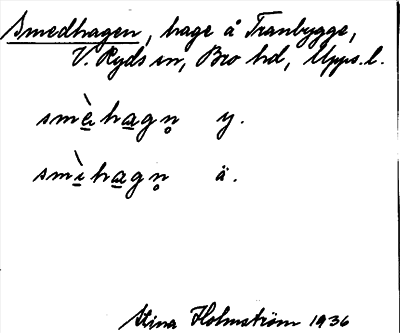 Smedhagen, hage å Tranbygge,
V. Ryds sn, Bro hd, Upps. l.
smè̱ha̱gn̥ y.
smì̱ha̱gn̥ ä.
Stina Holmström 1936